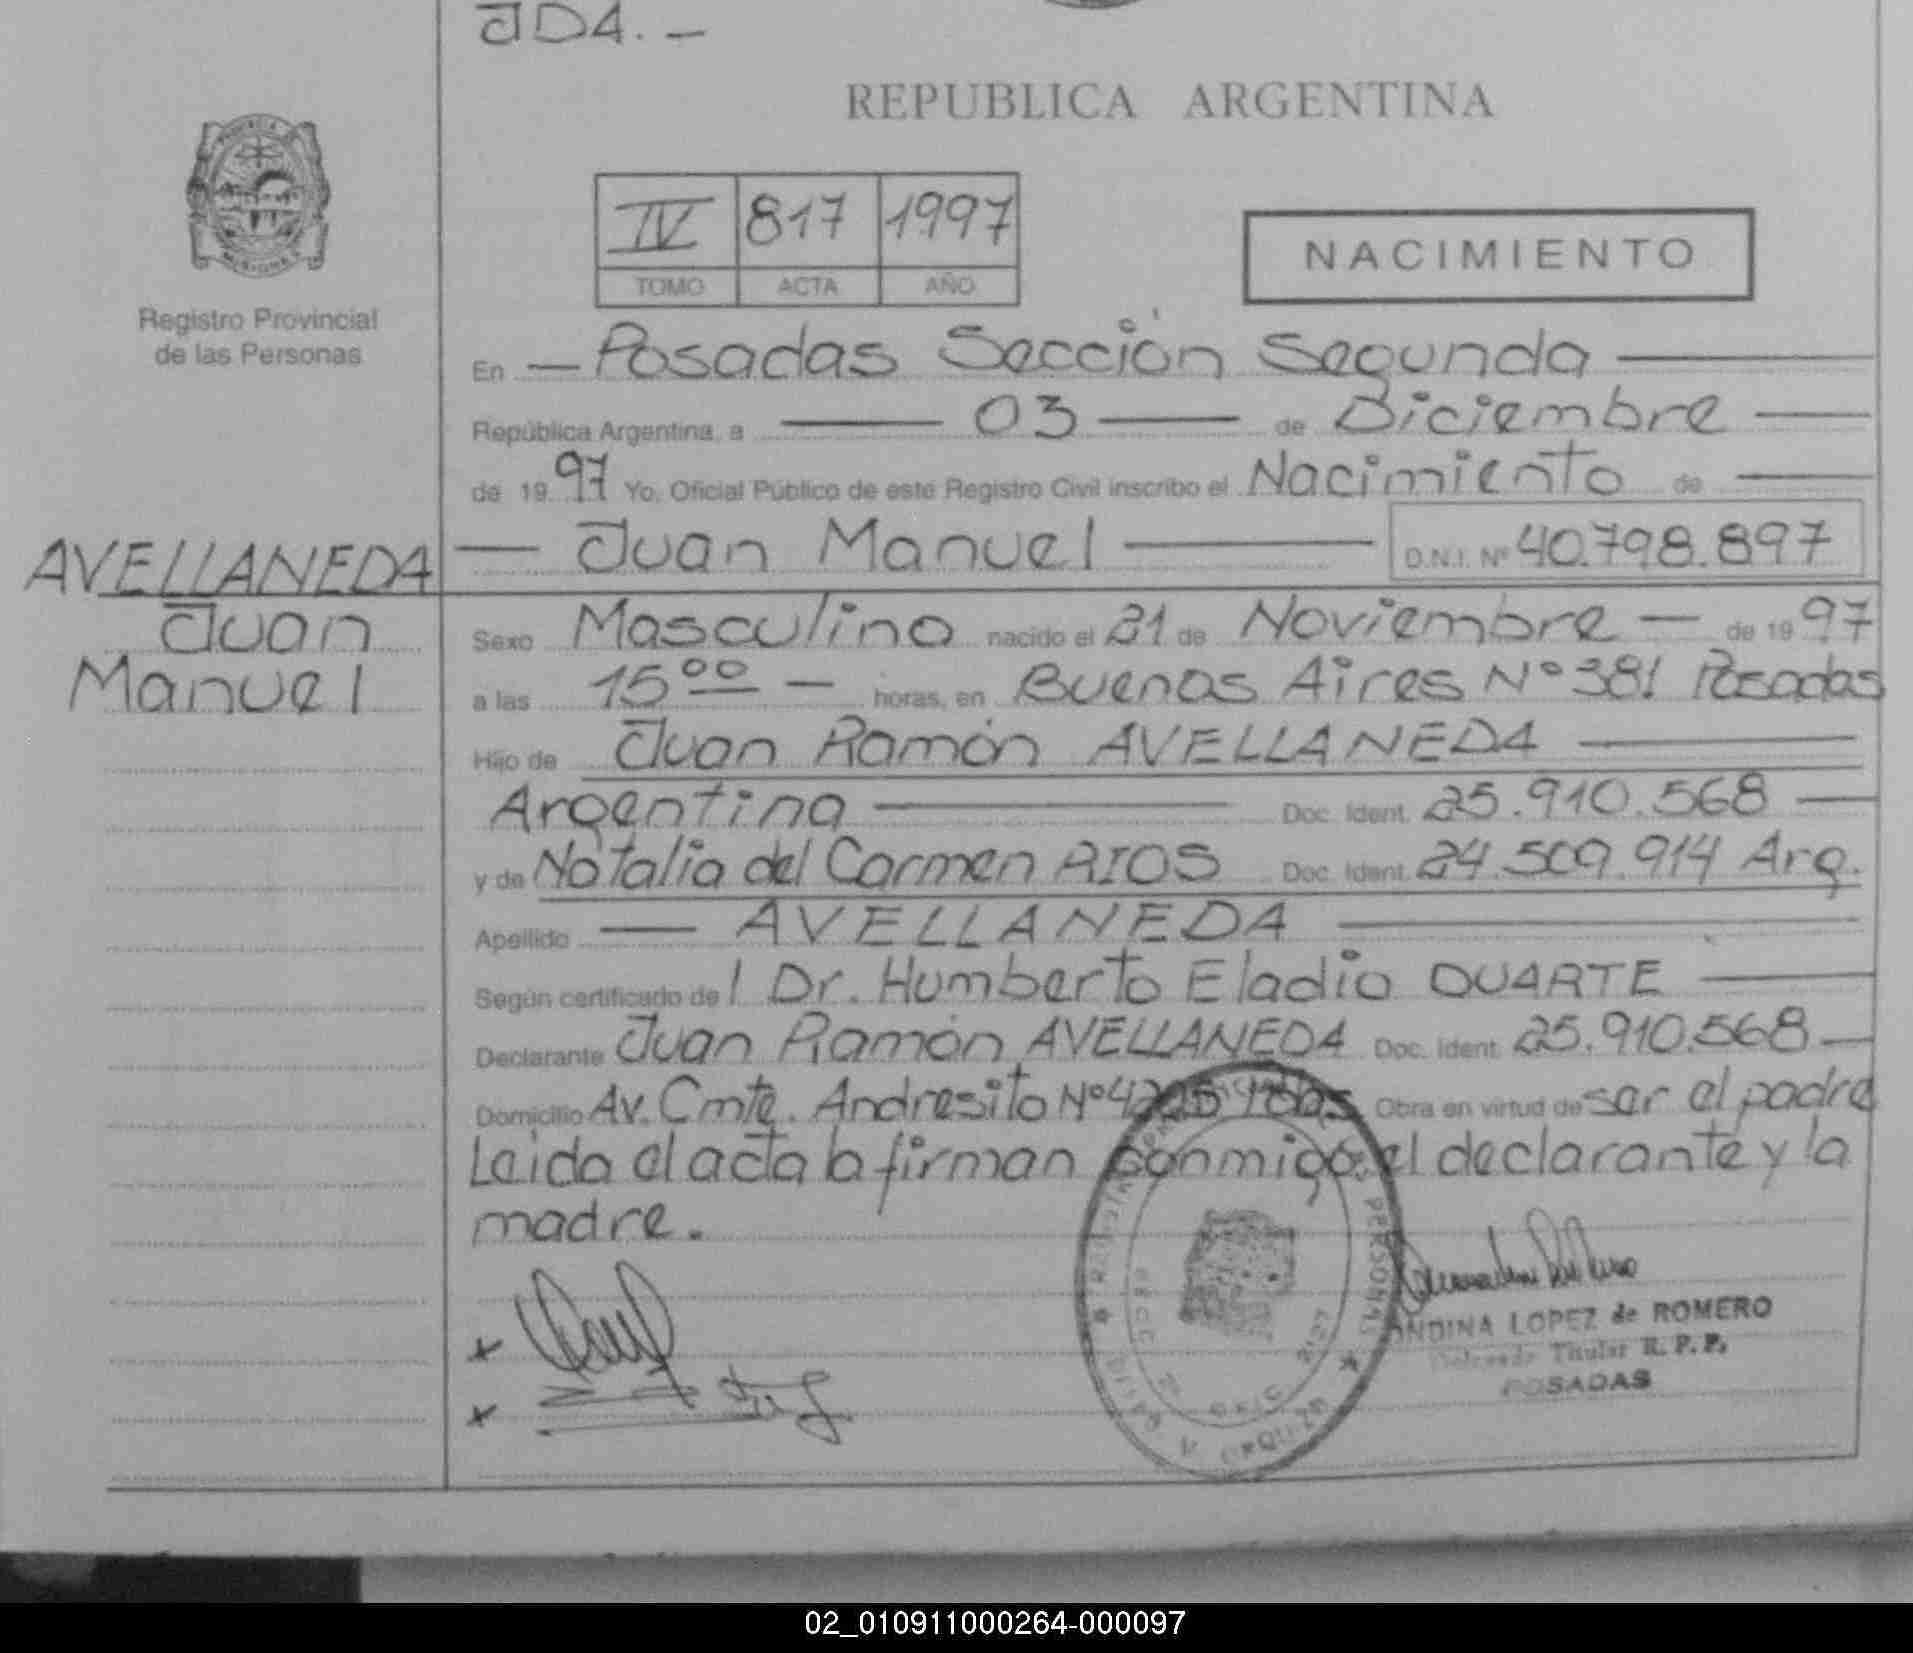 JDA. —
REPUBLICA ARGENTINA
IV 817 1997
TOMO ACTA AÑO
NACIMIENTO
PROVINCIA
MISIONES
Registro Provincial
de las Personas
En — Posadas Sección Segunda —
República Argentina, a — 03 — de Diciembre —
de 1997 Yo, Oficial Público de este Registro Civil inscribo el Nacimiento de —
AVELLANEDA
Juan
Manuel
— Juan Manuel — D.N.I. Nº 40.798.897
Sexo Masculino nacido el 21 de Noviembre — de 1997
a las 15 00 — horas, en Buenos Aires Nº 381 Posadas
Hijo de Juan Ramón AVELLANEDA —
Argentina — Doc. Ident. 25.910.568 —
y de Natalia del Carmen RIOS Doc. Ident. 24.509.914 Arg.
Apellido — AVELLANEDA —
Según certificado del Dr. Humberto Eladio DUARTE —
Declarante Juan Ramón AVELLANEDA Doc. Ident. 25.910.568 —
Domicilio Av. Cmte. Andresito Nº Obra en virtud de ser el padre
Leida el acta la firman conmigo, el declarante y la
madre.
PERSONAS
ONDINA LOPEZ de ROMERO
Delegada Titular R. P. P.
POSADAS
02_010911000264-000097